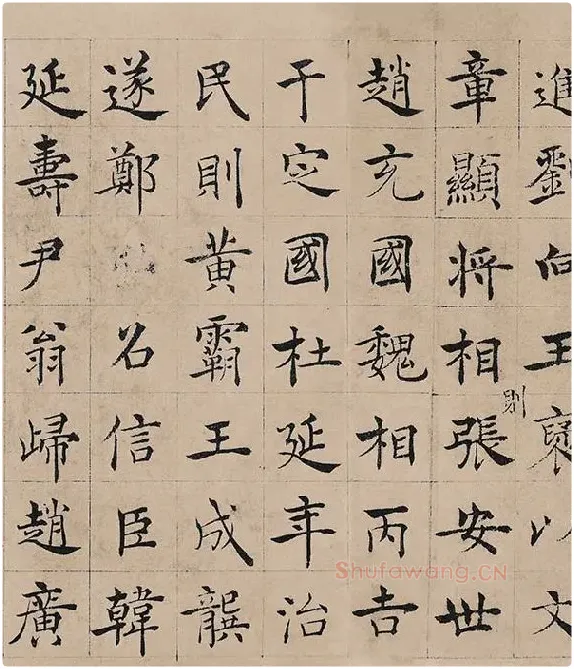 進劉向王襃以文
章顯將相則張安世
趙充國魏相丙吉
于定國杜延年治
民則黃霸王成龔
遂鄭召信臣韓
延壽尹翁歸趙廣
Shufawang.CN